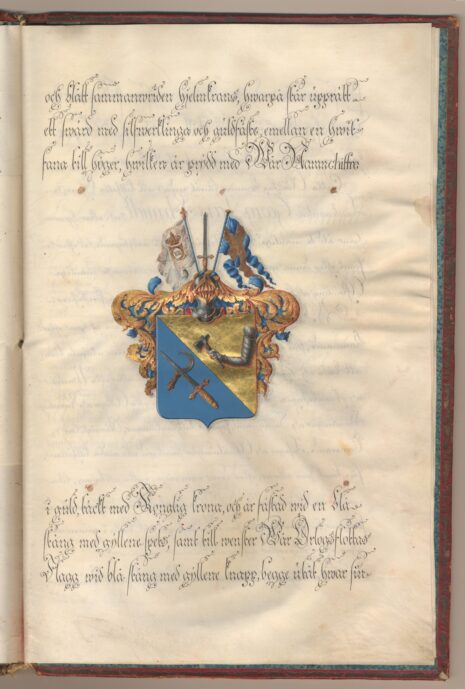 och blått sammanwriden hjelmkrans, hwarpå står upprätt
ett swärd med silfwerklinga och guldfäste, emellan en hwit
fana till höger, hwilken är prydd med Wår Namnchiffre
i guld, täckt med Konglig krona, och är fästad wid en blå
stång med gyllene spets, samt till wenster Wår Örlogsflottas
Flagg wid blå stång med gyllene knapp, begge utåt hwar sin